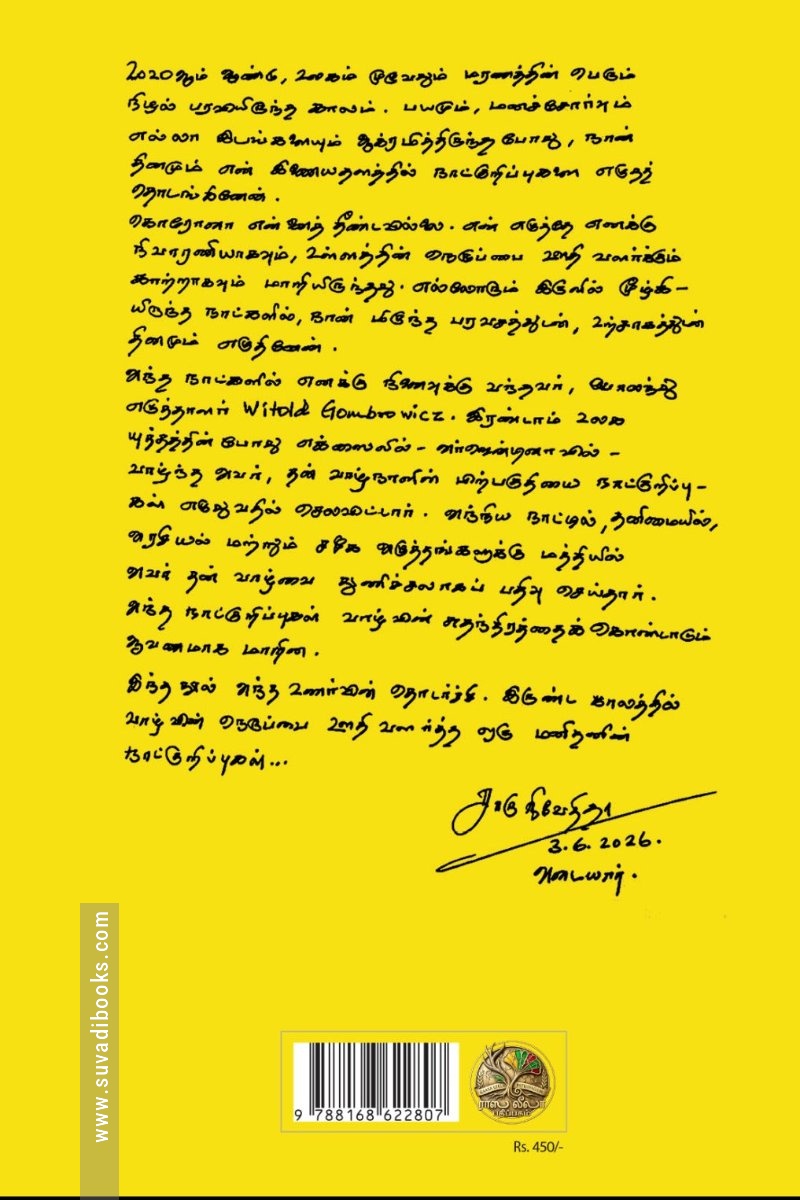 2020ஆம் ஆண்டு, உலகம் முழுவதும் மரணத்தின் பெரும்
நிழல் பரவியிருந்த காலம். பயமும், மனச்சோர்வும்
எல்லா இடங்களையும் ஆக்ரமித்திருந்த போது, நான்
தினமும் என் இணையதளத்தில் நாட்குறிப்புகளை எழுதத்
தொடங்கினேன்.
கொரோனா என்னைத் தீண்டவில்லை. என் எழுத்தே எனக்கு
நிவாரணியாகவும், உள்ளத்தின் நெருப்பை ஊதி வளர்க்கும்
காற்றாகவும் மாறியிருந்தது. எல்லோரும் இருளில் மூழ்கி-
யிருந்த நாட்களில், நான் மிகுந்த பரவசத்துடன், உற்சாகத்துடன்
தினமும் எழுதினேன்.
அந்த நாட்களில் எனக்கு நினைவுக்கு வந்தவர், போலந்து
எழுத்தாளர் Witold Gombrowicz. இரண்டாம் உலக
யுத்தத்தின் போது எக்ஸைலில் - அர்ஹென்டினாவில் -
வாழ்ந்த அவர், தன் வாழ்நாளின் பிற்பகுதியை நாட்குறிப்பு-
கள் எழுதுவதில் செலவிட்டார். அந்நிய நாட்டில், தனிமையில்,
அரசியல் மற்றும் சமூக அழுத்தங்களுக்கு மத்தியில்
அவர் தன் வாழ்வை துணிச்சலாகப் பதிவு செய்தார்.
அந்த நாட்குறிப்புகள் வாழ்வின் சுதந்திரத்தைக் கொண்டாடும்
ஆவணமாக மாறின.
இந்த நூல் அந்த உணர்வின் தொடர்ச்சி. இருண்ட காலத்தில்
வாழ்வின் நெருப்பை ஊதி வளர்த்த ஒரு மனிதனின்
நாட்குறிப்புகள்...
சாரு நிவேதிதா
3.6.2026.
அடையார்.
www.suvadibooks.com
9 788168 622807
ராஸ லீலா
பதிப்பகம்
Rs. 450/-